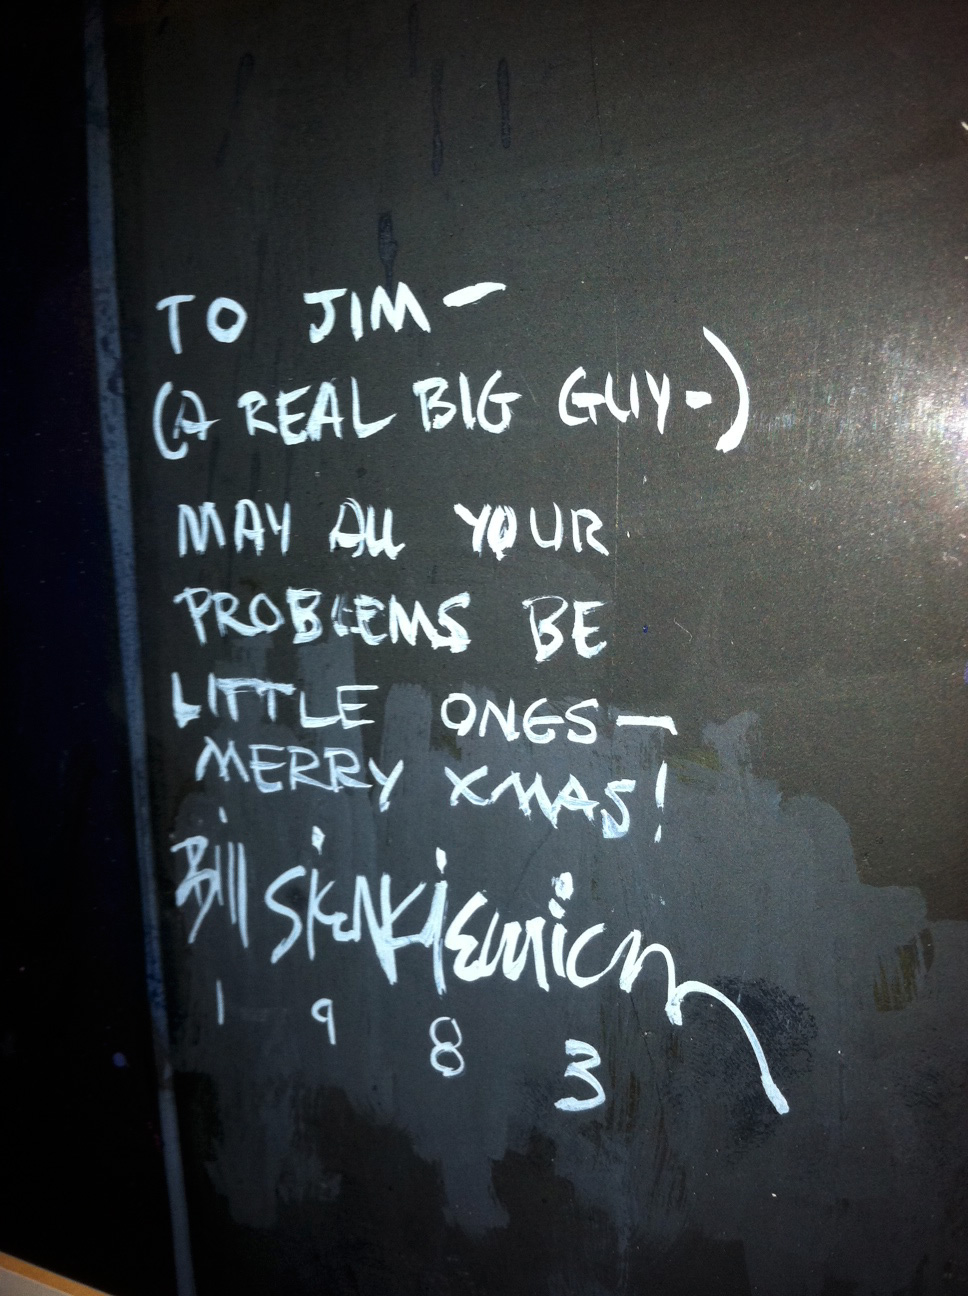 TO JIM—
(A REAL BIG GUY-)
MAY ALL YOUR
PROBLEMS BE
LITTLE ONES—
MERRY XMAS!
Bill SienKiewicz
1983